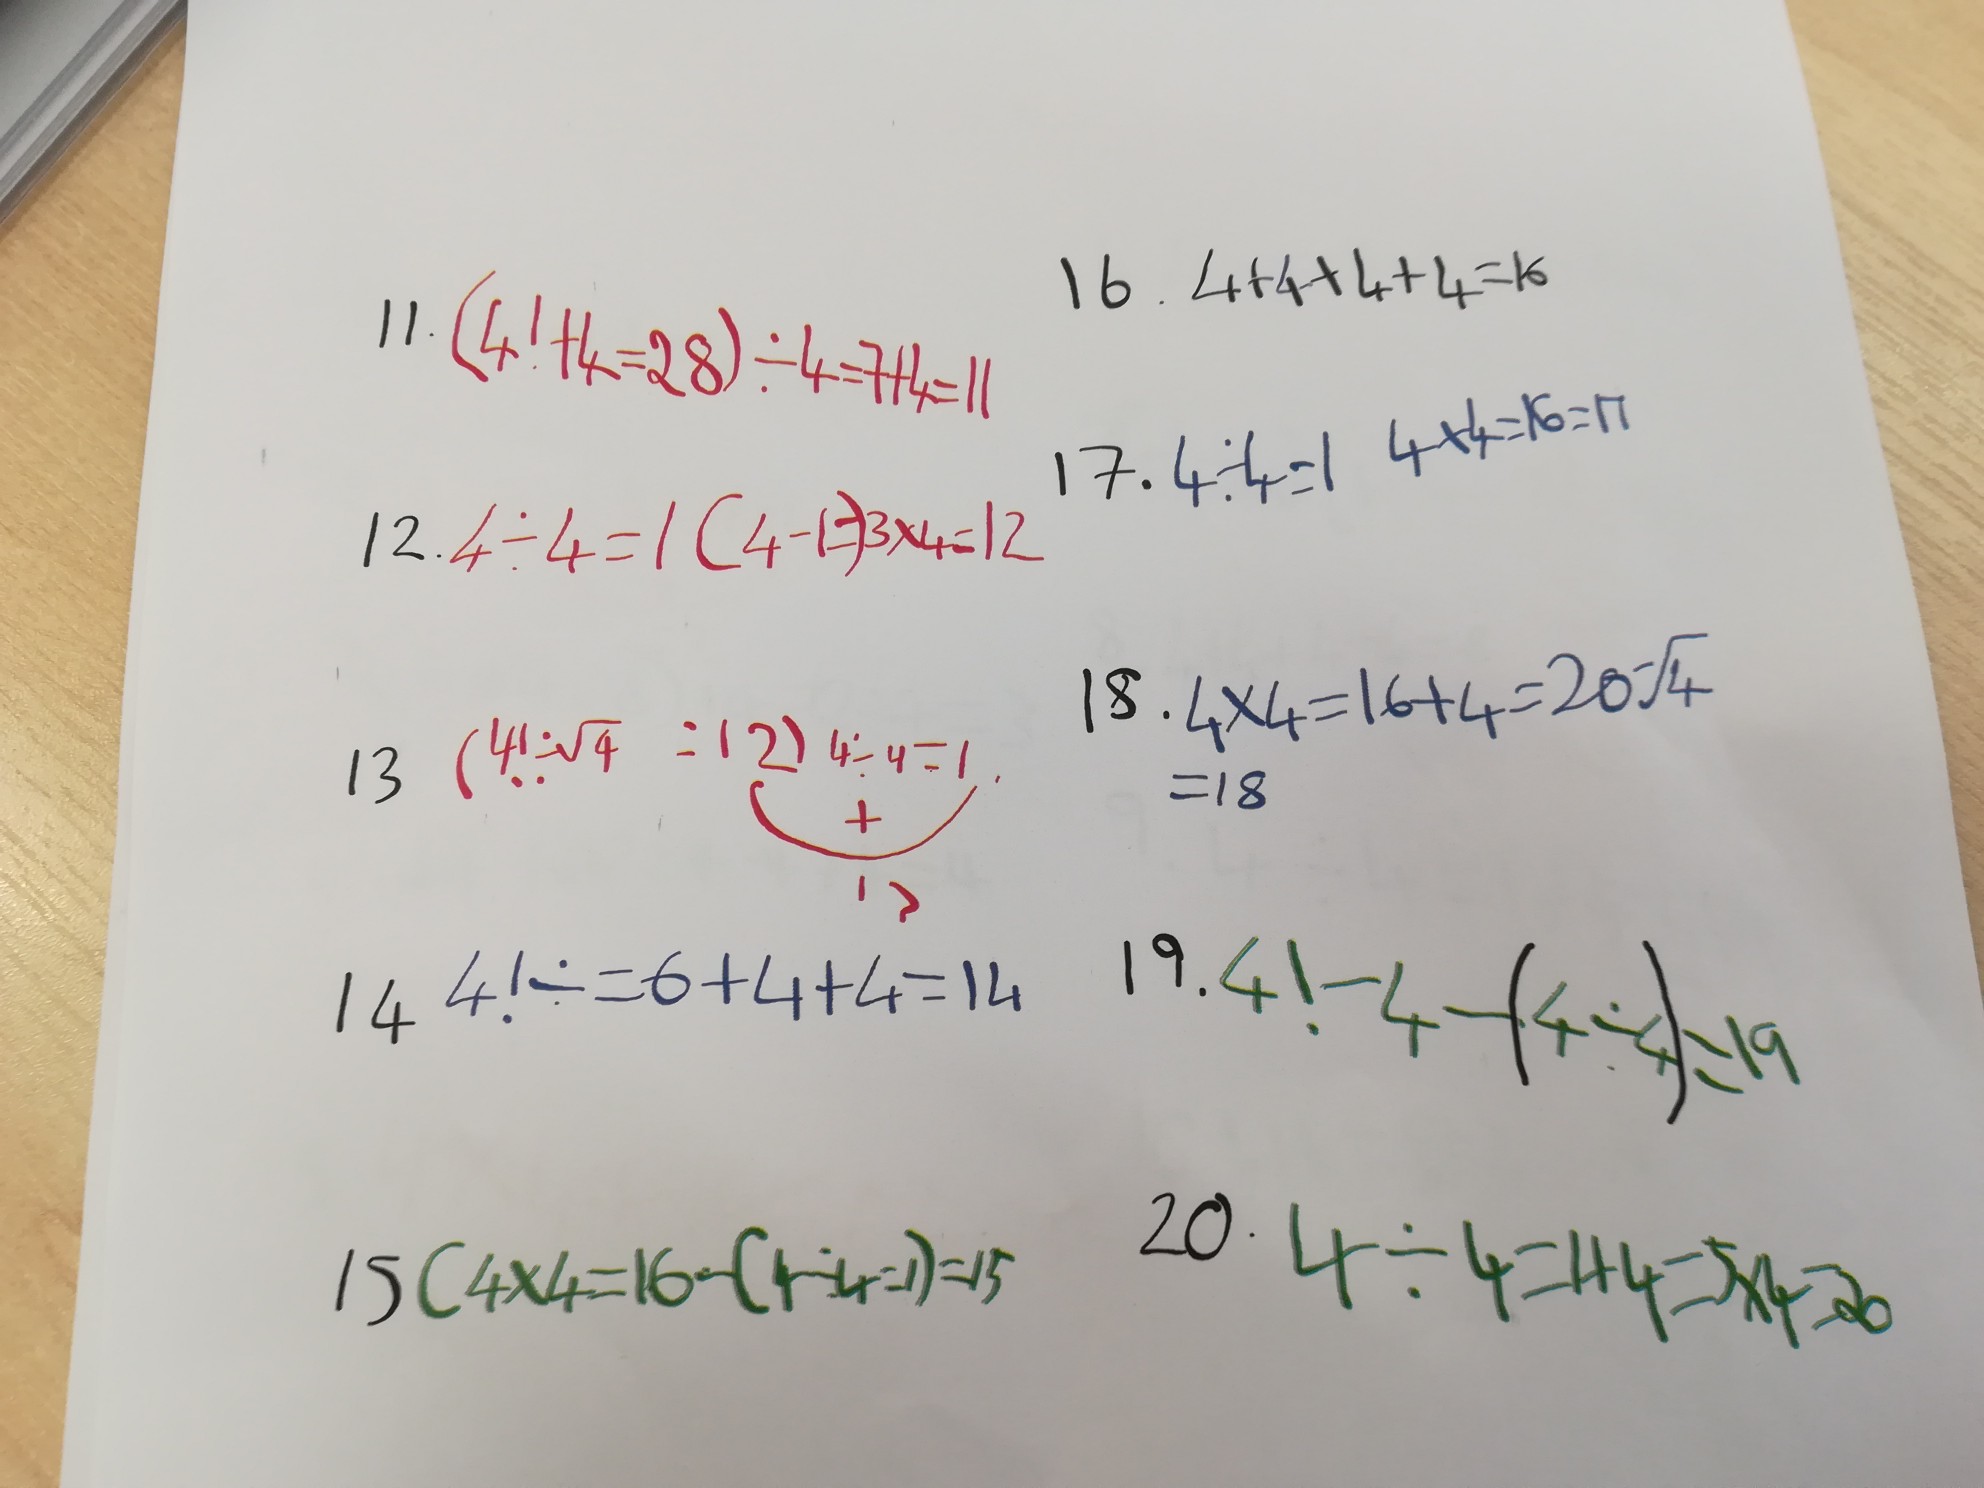 11. (4!+4=28)÷4=7+4=11
12. 4÷4=1 (4-1=)3×4=12
13 (4!÷√4 =12) 4÷4=1.
+
13
14 4!÷=6+4+4=14
15 (4×4=16-(4÷4=1)=15
16. 4+4+4+4=16
17. 4÷4=1 4×4=16=17
18. 4×4=16+4=20-√4
=18
19. 4!-4-(4÷4)=19
20. 4÷4=1+4=5×4=20